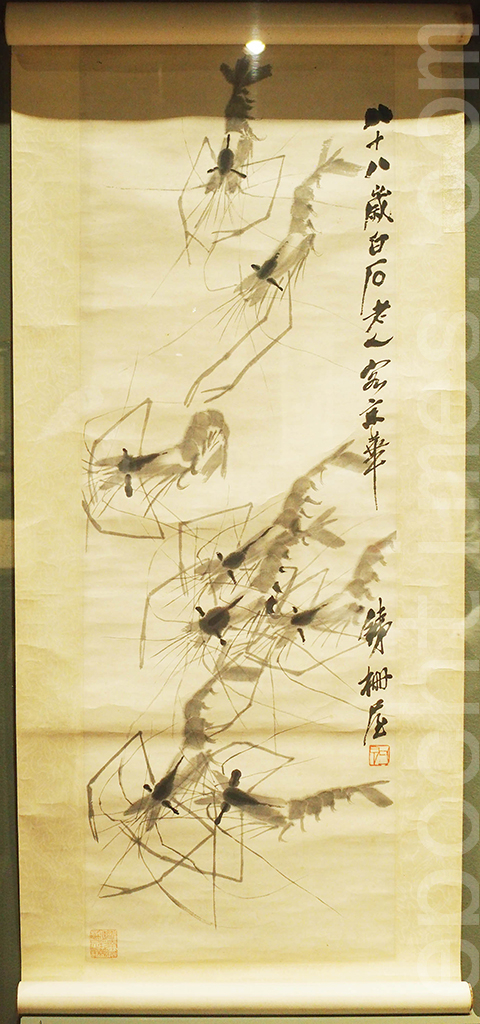 八十八歲白石老人客京華
鐵柵屋
epochtimes.com